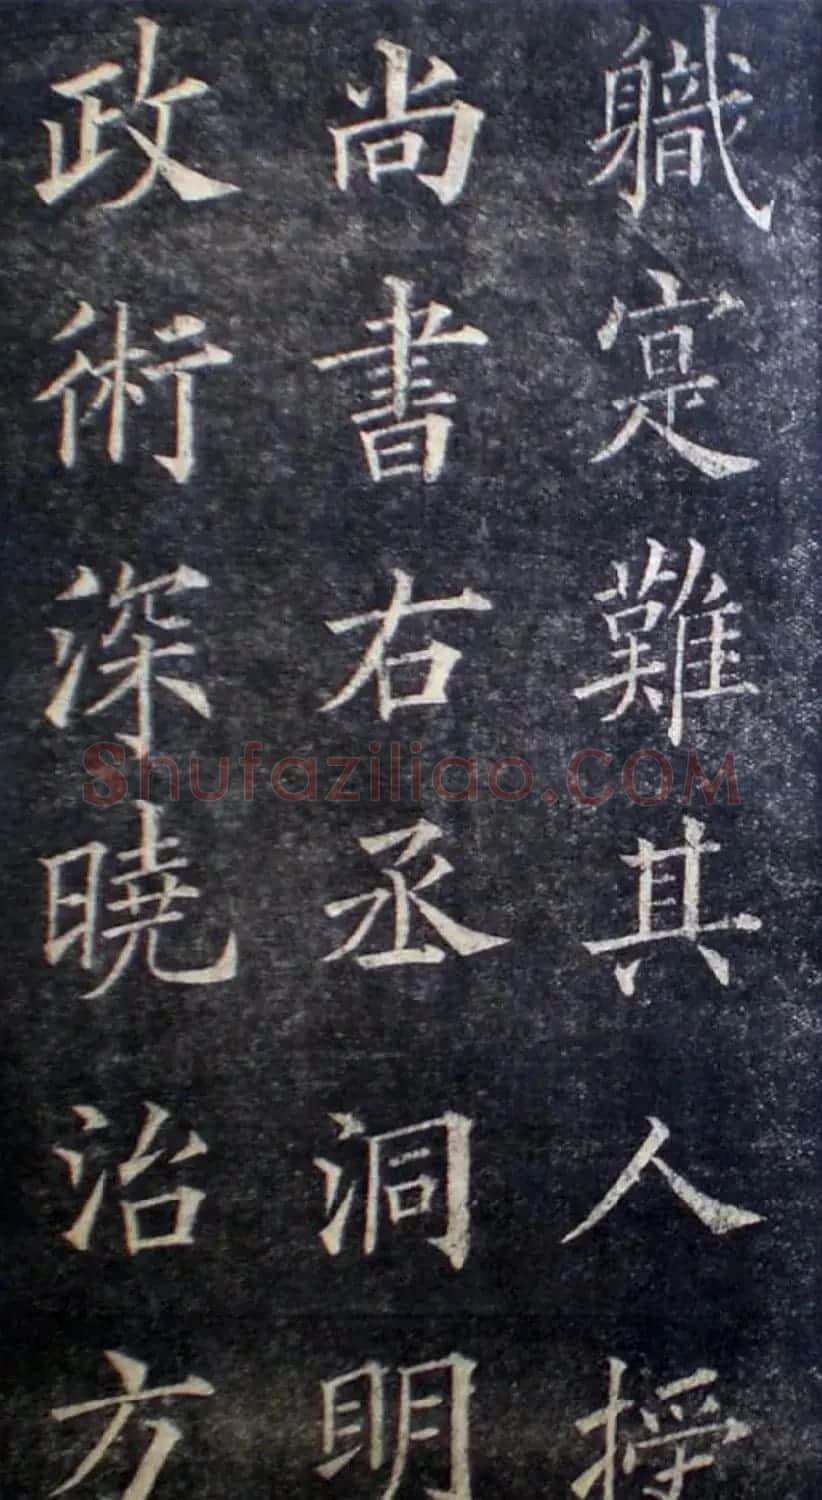 軄寔難其人授
尚書右丞洞明
政術深曉治方
Shufaziliao.COM